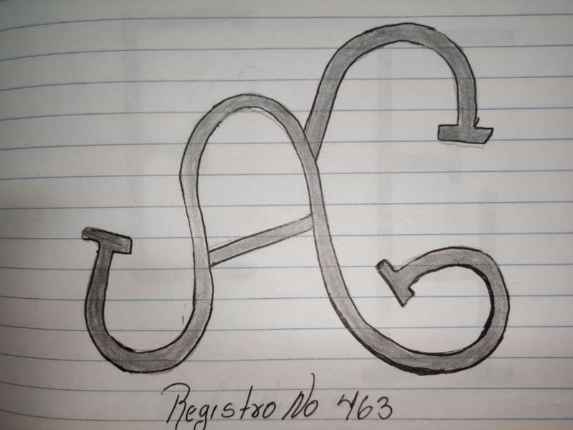 AC
Registro No 463